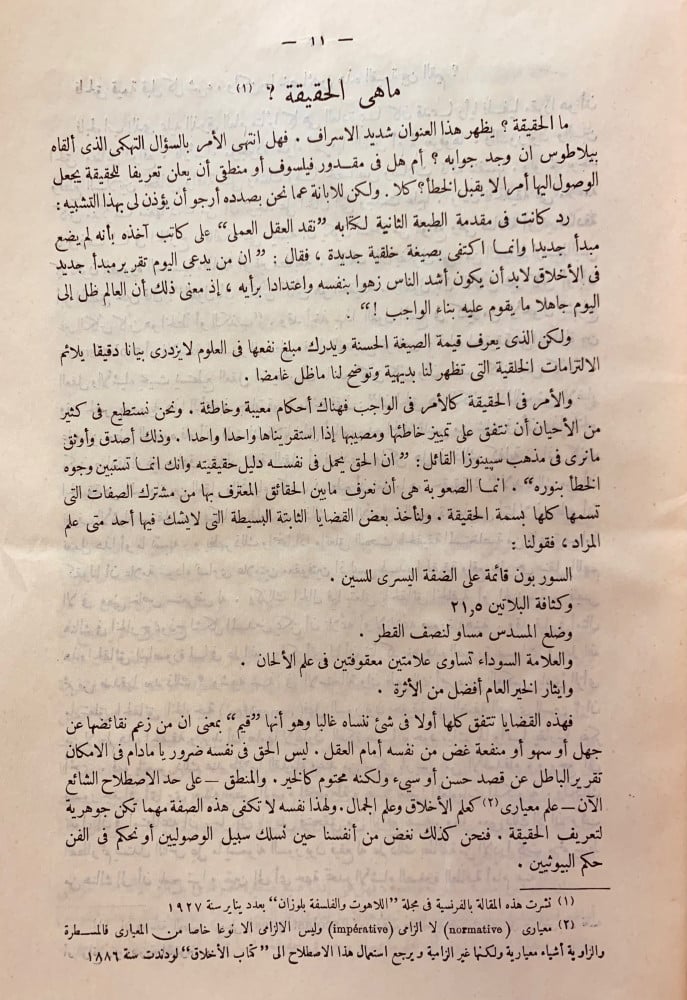 — ١١ —
ماهى الحقيقة ؟ (١)
ما الحقيقة ؟ يظهر هذا العنوان شديد الاسراف . فهل انتهى الأمر بالسؤال التهكمى الذى ألقاه
بيلاطوس ان وجد جوابه ؟ أم هل فى مقدور فيلسوف أو منطقى أن يعلن تعريفا للحقيقة يجعل
الوصول اليها أمرا لا يقبل الخطأ ؟ كلا . ولكن للابانة عما نحن بصدده أرجو أن يؤذن لى بهذا التشبيه :
رد كانت فى مقدمة الطبعة الثانية لكتابه ”نقد العقل العملى“ على كاتب آخذه بأنه لم يضع
مبدأ جديدا وانما اكتفى بصيغة خلقية جديدة ، فقال : ”ان من يدعى اليوم تقرير مبدأ جديد
فى الأخلاق لابد أن يكون أشد الناس زهوا بنفسه واعتدادا برأيه ، إذ معنى ذلك أن العالم ظل إلى
اليوم جاهلا ما يقوم عليه بناء الواجب !“ .
ولكن الذى يعرف قيمة الصيغة الحسنة ويدرك مبلغ نفعها فى العلوم لايزدرى بيانا دقيقا يلائم
الالتزامات الخلقية التى تظهر لنا بديهية وتوضح لنا ماظل غامضا .
والأمر فى الحقيقة كالأمر فى الواجب فهناك أحكام معيبة وخاطئة . ونحن نستطيع فى كثير
من الأحيان أن نتفق على تمييز خاطئها ومصيبها إذا استقريناها واحدا واحدا . وذلك أصدق وأوثق
مانرى فى مذهب سپينوزا القائل : ”ان الحق يحمل فى نفسه دليل حقيقته وانك انما تستبين وجوه
الخطأ بنوره“ . انما الصعوبة هى أن نعرف مابين الحقائق المعترف بها من مشترك الصفات التى
تسمها كلها بسمة الحقيقة . ولنأخذ بعض القضايا الثابتة البسيطة التى لايشك فيها أحد متى علم
المراد ، فقولنا :
السوربون قائمة على الضفة اليسرى للسين .
وكثافة البلاتين ٢١٫٥
وضلع المسدس مساو لنصف القطر .
والعلامة السوداء تساوى علامتين معقوفتين فى علم الألحان .
وايثار الخير العام أفضل من الأثرة .
فهذه القضايا تتفق كلها أولا فى شئ ننساه غالبا وهو أنها ”قيم“ بمعنى ان من زعم نقائضها عن
جهل أو سهو أو منفعة غض من نفسه أمام العقل . ليس الحق فى نفسه ضروريا مادام فى الامكان
تقرير الباطل عن قصد حسن أو سيء ولكنه محتوم كالخير . والمنطق — على حد الاصطلاح الشائع
الآن — علم معيارى (٢) كعلم الأخلاق وعلم الجمال . ولهذا نفسه لا تكفى هذه الصفة مهما تكن جوهرية
لتعريف الحقيقة . فنحن كذلك نغض من أنفسنا حين نسلك سبيل الوصوليين أو نحكم فى الفن
حكم البيوثيين .
(١) نشرت هذه المقالة بالفرنسية فى مجلة ”اللاهوت والفلسفة بلوزان“ بعدد يناير سنة ١٩٢٧
(٢) معيارى (normative) لا الزامى (impérative) وليس الالزامى الا نوعا خاصا من المعيارى فالمسطرة
والزاوية أشياء معيارية ولكنها غير الزامية ويرجع استعمال هذا الاصطلاح الى ”كتاب الأخلاق“ لوندنت سنة ١٨٨٦